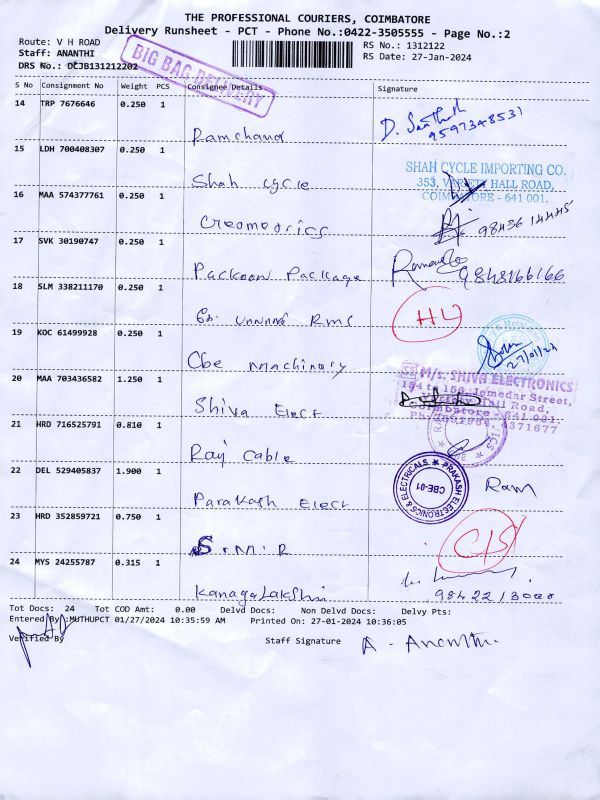 THE PROFESSIONAL COURIERS, COIMBATORE
Delivery Runsheet - PCT - Phone No.:0422-3505555 - Page No.:2
Route: V H ROAD
Staff: ANANTHI
DRS No.: DCJB131212202
BIG BAG DELIVERY
RS No.: 1312122
RS Date: 27-Jan-2024
S No Consignment No Weight PCS Consignee Details Signature
14 TRP 7676646 0.250 1
Ramchand D. Santhosh
9597348531
15 LDH 700408307 0.250 1
Shah cycle
SHAH CYCLE IMPORTING CO.
353, VARIETY HALL ROAD,
COIMBATORE - 641 001.
16 MAA 574377761 0.250 1
Creomedrics 9843614445
17 SVK 30190747 0.250 1
Packoon Package 9848166166
18 SLM 338211170 0.250 1
RMS
19 KOC 61499928 0.250 1
Cbe Machinary 27/01/24
20 MAA 703436582 1.250 1
Shiva Elect
M/s. SHIVA ELECTRONICS
154 to 156, Jamedar Street,
Variety Hall Road,
Coimbatore - 641 001.
4371677
21 HRD 716525791 0.810 1
Raj Cable
22 DEL 529405837 1.900 1
Parakash Elect
PRAKASH ELECTRONICS & ELECTRICALS
CBE-01
Ram
23 HRD 352859721 0.750 1
S.M.R
24 MYS 24255787 0.315 1
Kanagalakshmi
Tot Docs: 24 Tot COD Amt: 0.00 Delvd Docs: Non Delvd Docs: Delvy Pts:
Entered By :MUTHUPCT 01/27/2024 10:35:59 AM Printed On: 27-01-2024 10:36:05
Verified By Staff Signature A. Ananthi